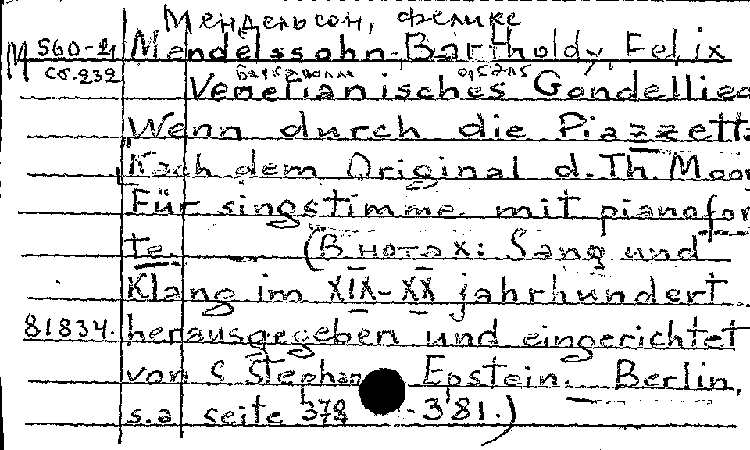 Мендельсон, Феликс
М 560-2 Mendelssohn-Bartholdy, Felix
Сб.232
Venetianisches Gondellied
Wenn durch die Piazzett
Nach dem Original d. Th. Moor
Für singstimme mit pianofor
te. (В нотах: Sang und
Klang im XIX-XX jahrhundert
81834. herausgegeben und eingerichtet
von S Stephan Epstein. Berlin,
s.a. seite 378-381.)